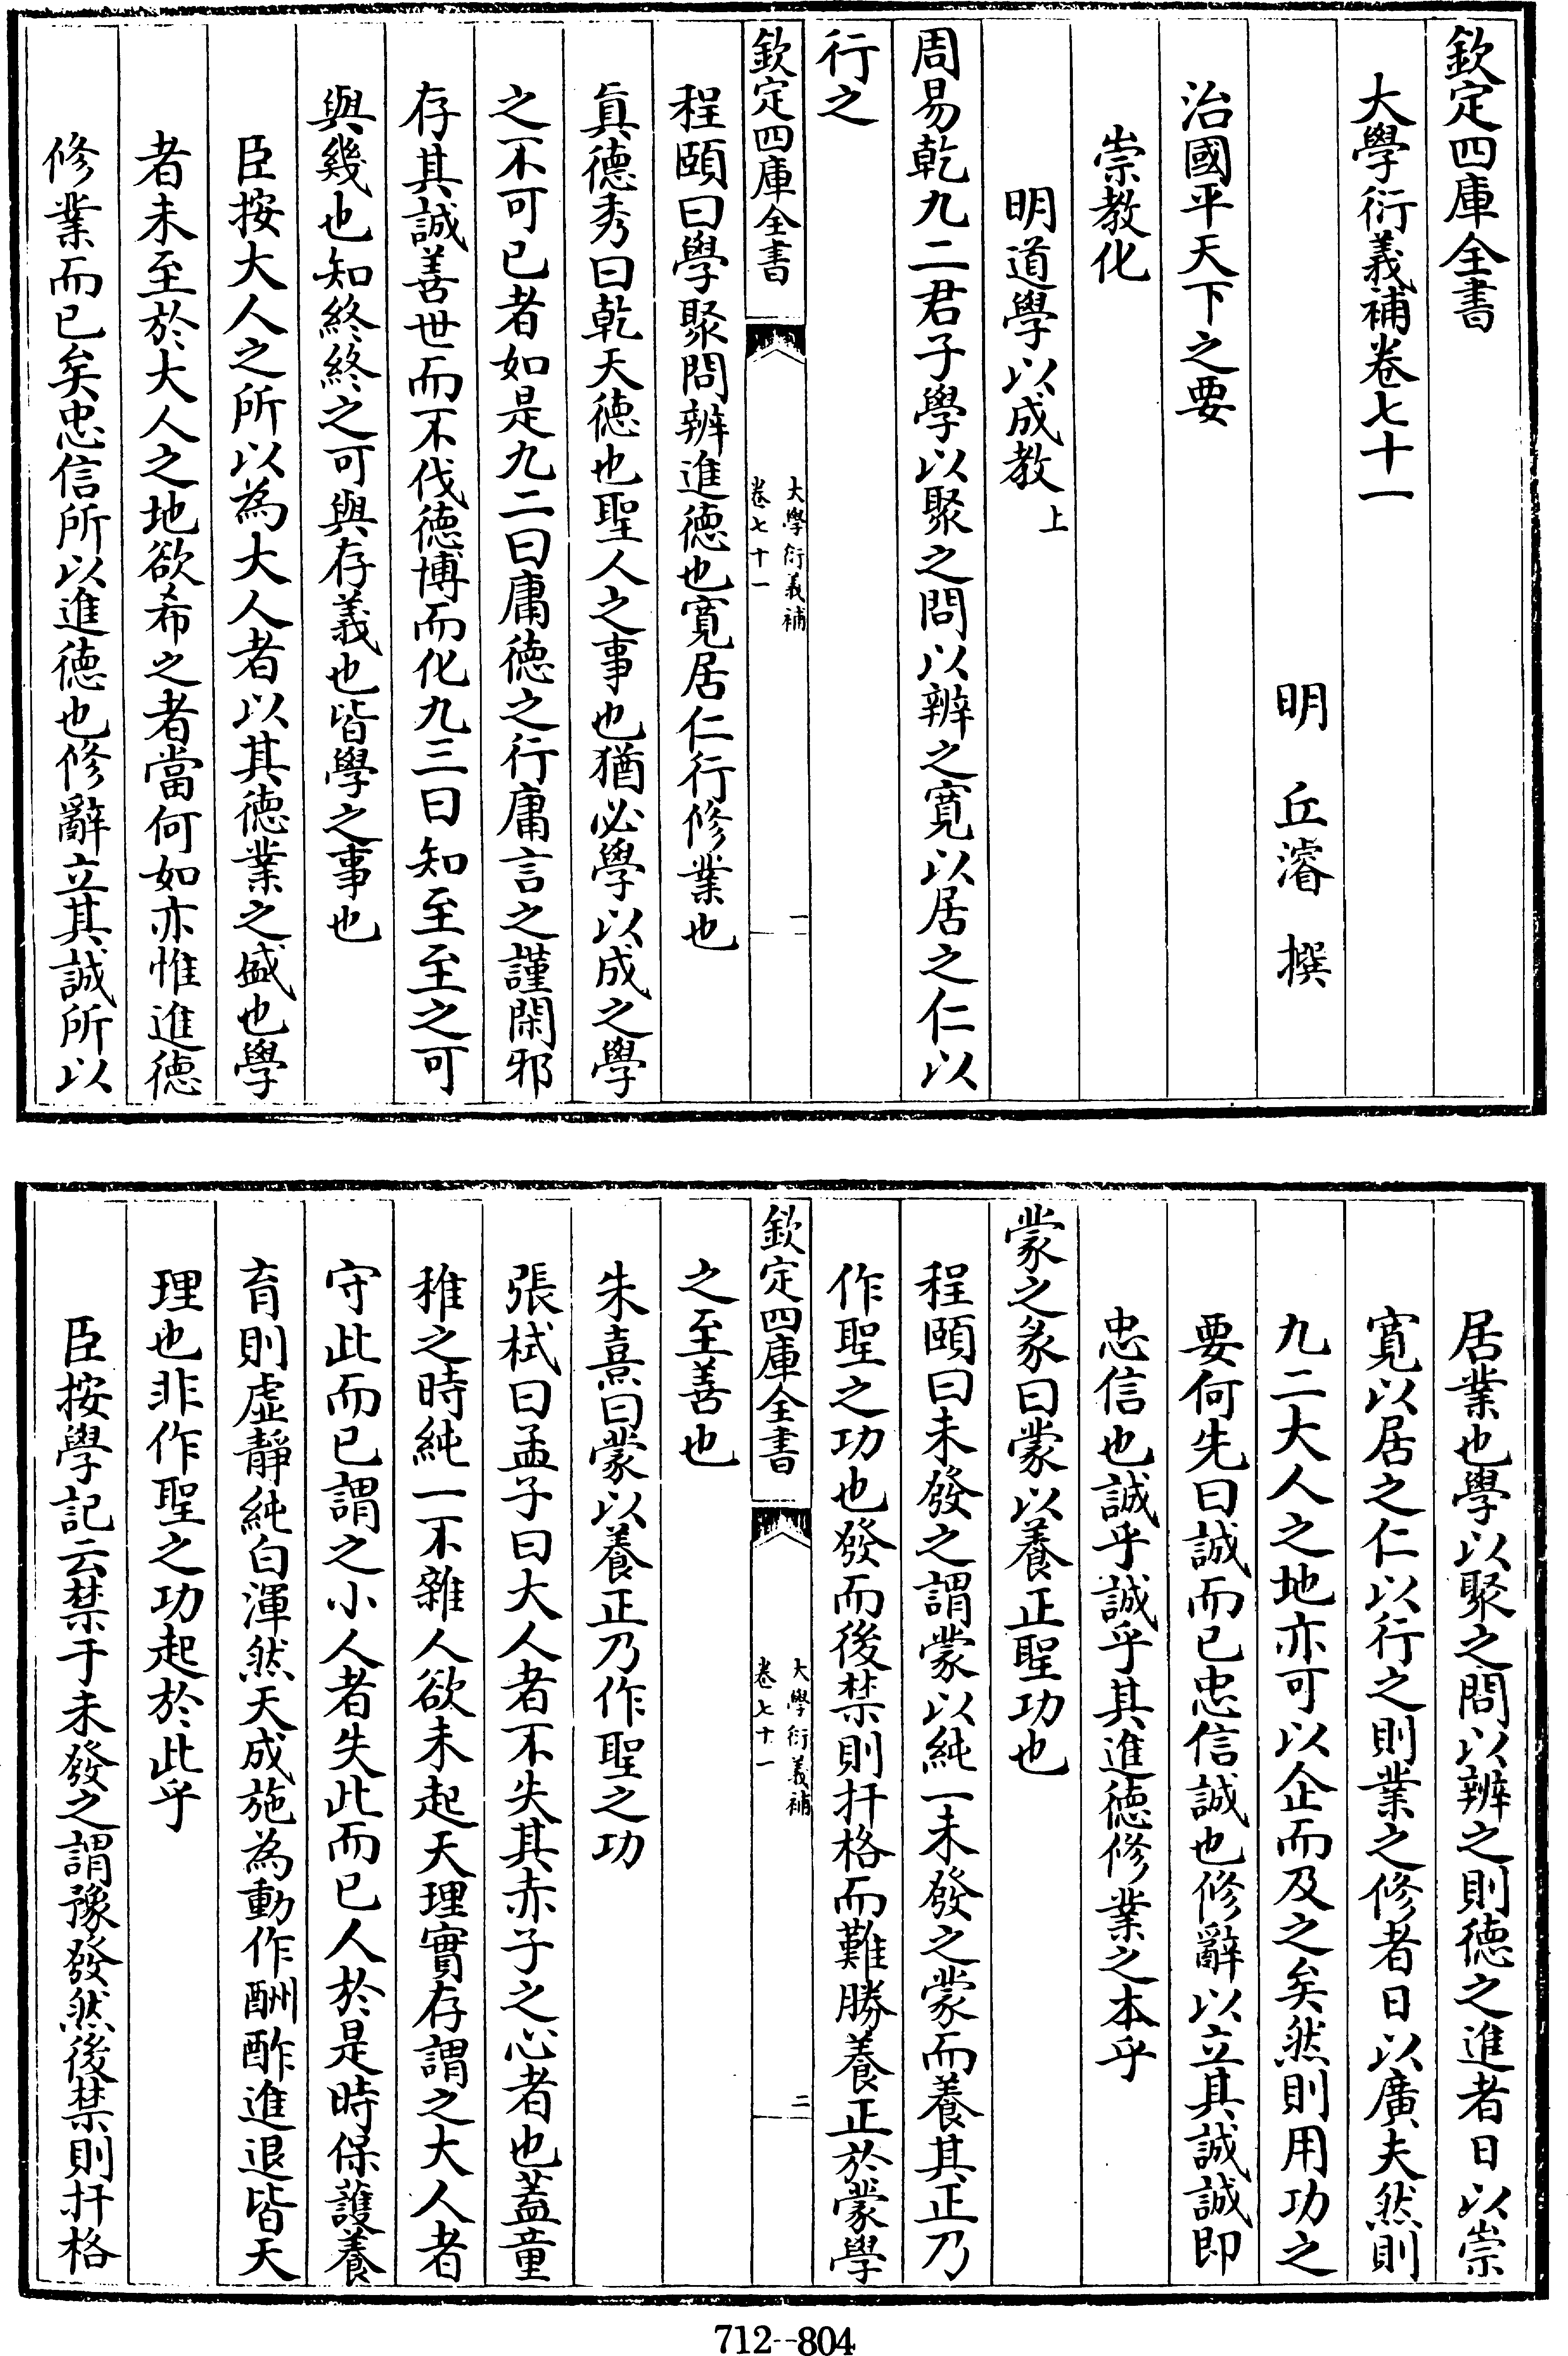 欽定四庫全書
大學衍義補卷七十一
明 丘濬 撰
治國平天下之要
崇教化
明道學以成教上
周易乾九二君子學以聚之問以辨之寬以居之仁以
行之
欽定四庫全書
大學衍義補
卷七十一
一
程頤曰學聚問辨進德也寛居仁行修業也
真德秀曰乾天德也聖人之事也猶必學以成之學
之不可已者如是九二曰庸德之行庸言之謹閑邪
存其誠善世而不伐德博而化九三曰知至至之可
與幾也知終終之可與存義也皆學之事也
臣按大人之所以為大人者以其德業之盛也學
者未至於大人之地欲希之者當何如亦惟進德
修業而已矣忠信所以進德也修辭立其誠所以
居業也學以聚之問以辨之則德之進者日以崇
寛以居之仁以行之則業之修者日以廣夫然則
九二大人之地亦可以企而及之矣然則用功之
要何先曰誠而已忠信誠也修辭以立其誠誠即
忠信也誠乎誠乎其進德修業之本乎
蒙之彖曰蒙以養正聖功也
程頤曰未發之謂蒙以純一未發之蒙而養其正乃
作聖之功也發而後禁則扞格而難勝養正於蒙學
欽定四庫全書
大學衍義補
卷七十一
二
之至善也
朱熹曰蒙以養正乃作聖之功
張栻曰孟子曰大人者不失其赤子之心者也蓋童
稚之時純一不雜人欲未起天理實存謂之大人者
守此而已謂之小人者失此而已人於是時保護養
育則虛靜純白渾然天成施為動作酬酢進退皆天
理也非作聖之功起於此乎
臣按學記云禁于未發之謂豫發然後禁則扞格
712--804